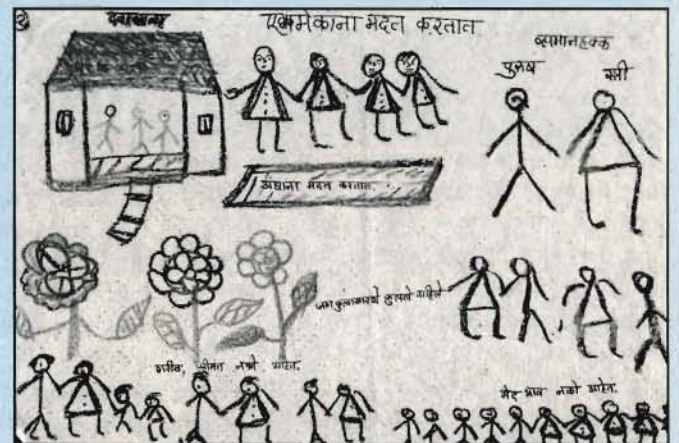 २
दवाखाना
एकमेकाना मदत करतात
समानहक्क
पुरुष
स्त्री
अंधाना मदत करतात.
जग फुलासारखे फुलले पाहिजे
गरीब, श्रीमंत नको आहेत.
भेद भाव नको आहेत.